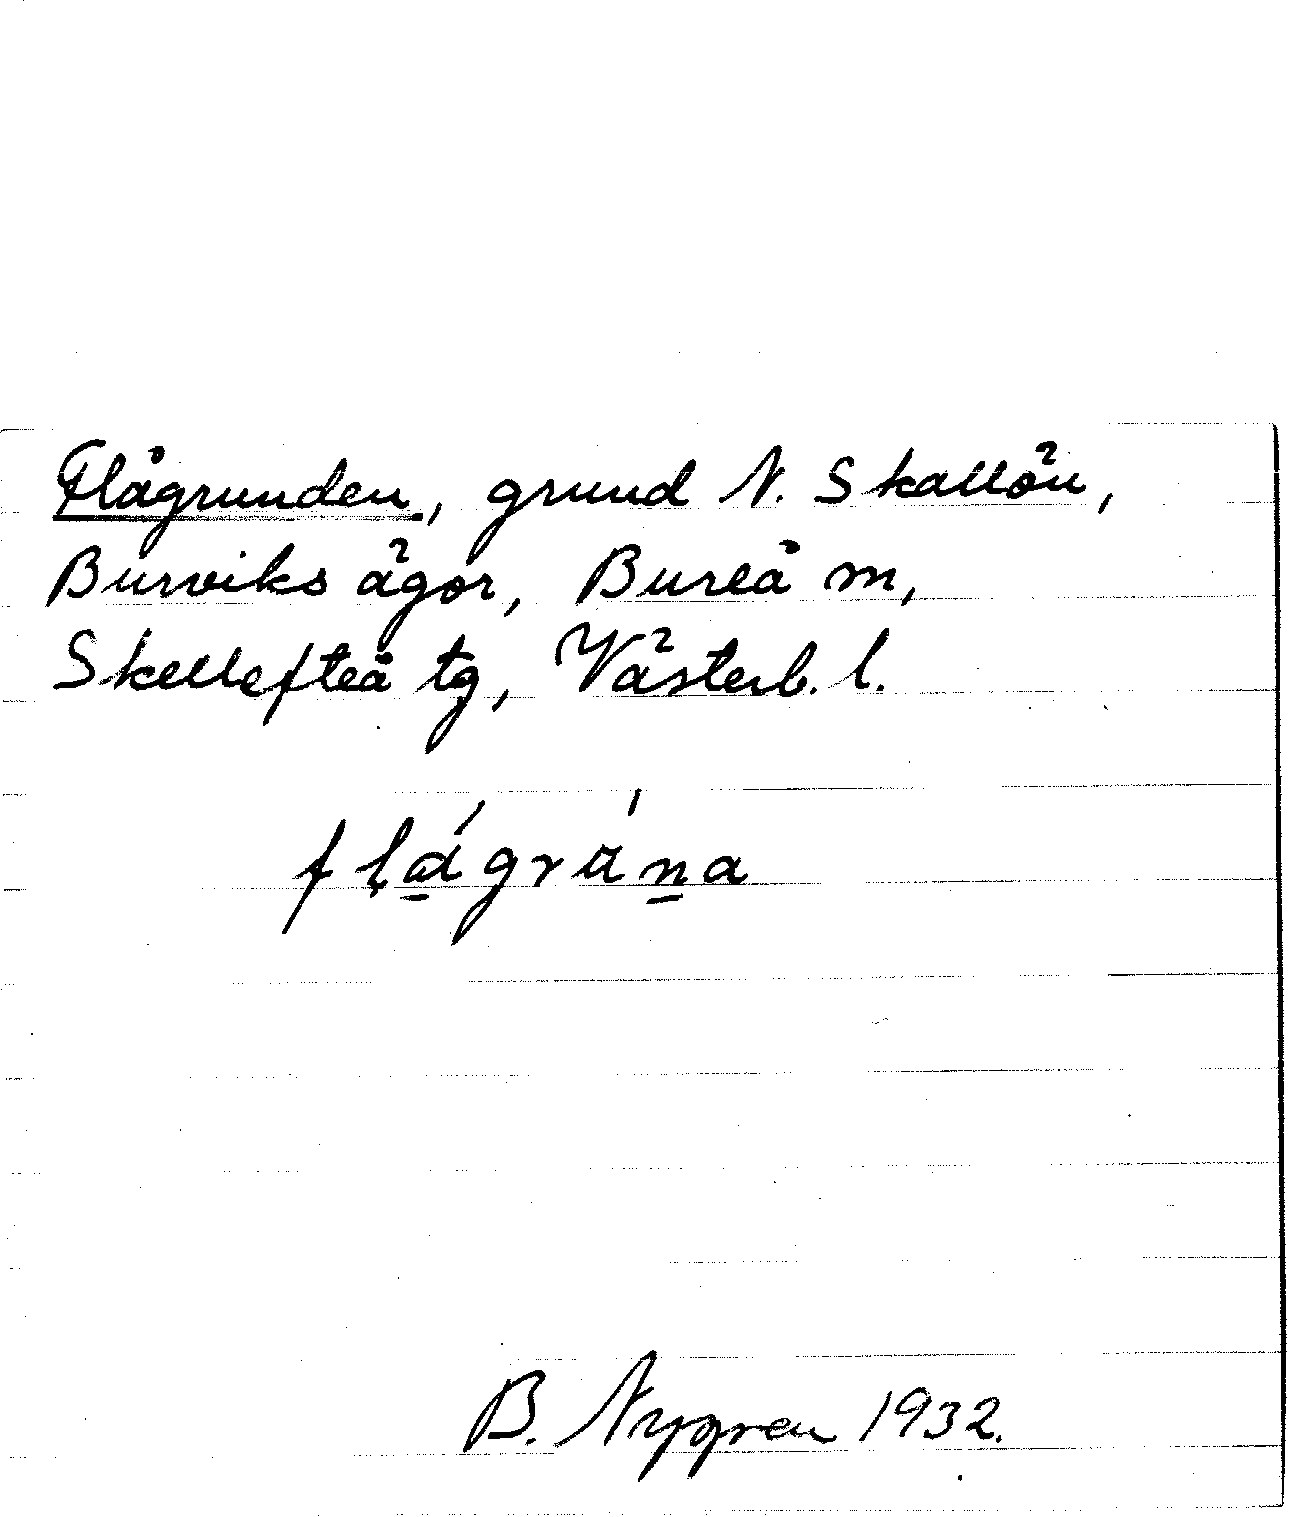 Flågrunden, grund N. Skallön,
Burviks ägor, Bureå m,
Skellefteå tg, Västerb. l.
B. Nygren 1932.